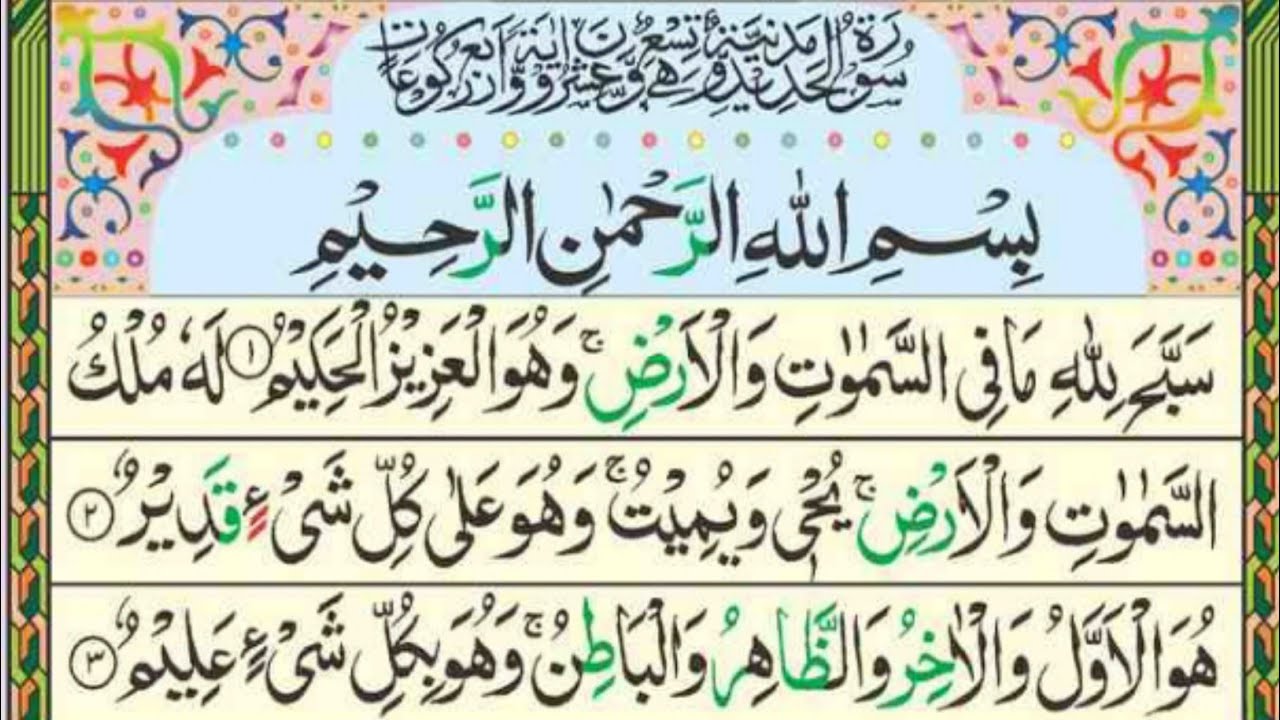 سُوْرَةُ الْحَدِيْدِ مَدَنِيَّةٌ وَّهِيَ تِسْعٌ وَّعِشْرُوْنَ اٰيَةً وَّاَرْبَعُ رُكُوْعَاتٍ
بِسْمِ اللّٰهِ الرَّحْمٰنِ الرَّحِيْمِ
سَبَّحَ لِلّٰهِ مَا فِى السَّمٰوٰتِ وَالْاَرْضِ ۚ وَهُوَ الْعَزِيْزُ الْحَكِيْمُ ۝۱ لَهٗ مُلْكُ
السَّمٰوٰتِ وَالْاَرْضِ ۚ يُحْىٖ وَيُمِيْتُ ۚ وَهُوَ عَلٰى كُلِّ شَىْءٍ قَدِيْرٌ ۝۲
هُوَ الْاَوَّلُ وَالْاٰخِرُ وَالظَّاهِرُ وَالْبَاطِنُ ۚ وَهُوَ بِكُلِّ شَىْءٍ عَلِيْمٌ ۝۳